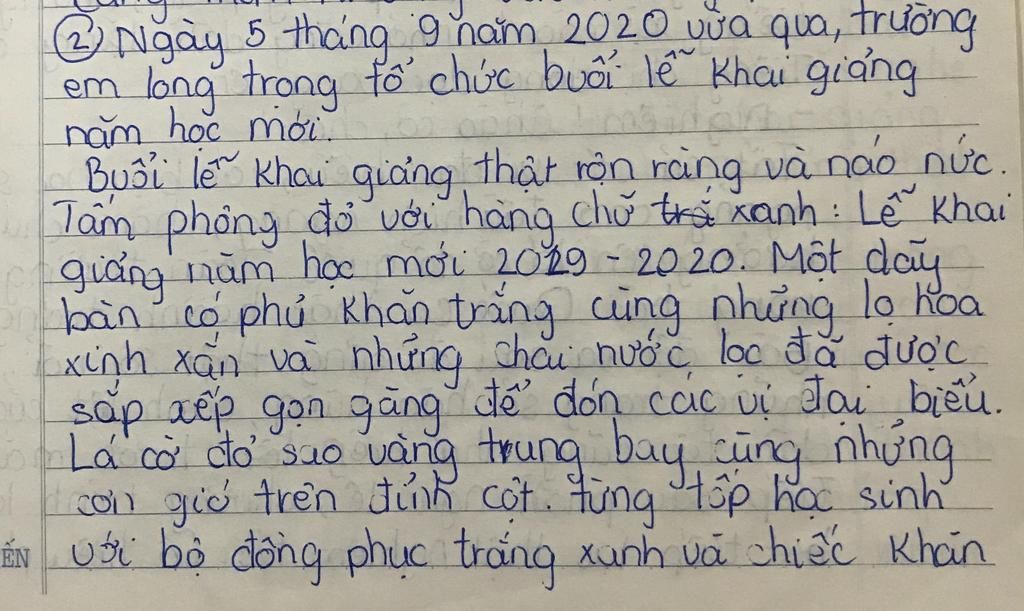 ② Ngày 5 tháng 9 năm 2020 vừa qua, trường
em long trọng tổ chức buổi lễ khai giảng
năm học mới.
Buổi lễ khai giảng thật rộn ràng và náo nức.
Tấm phông đỏ với hàng chữ xanh: Lễ khai
giảng năm học mới 2019 - 2020. Một dãy
bàn có phủ khăn trắng cùng những lọ hoa
xinh xắn và những chai nước lọc đã được
sắp xếp gọn gàng để đón các vị đại biểu.
Lá cờ đỏ sao vàng trung bay cùng những
cơn gió trên đỉnh cột. từng tốp học sinh
ẾN với bộ đồng phục trắng xanh và chiếc khăn